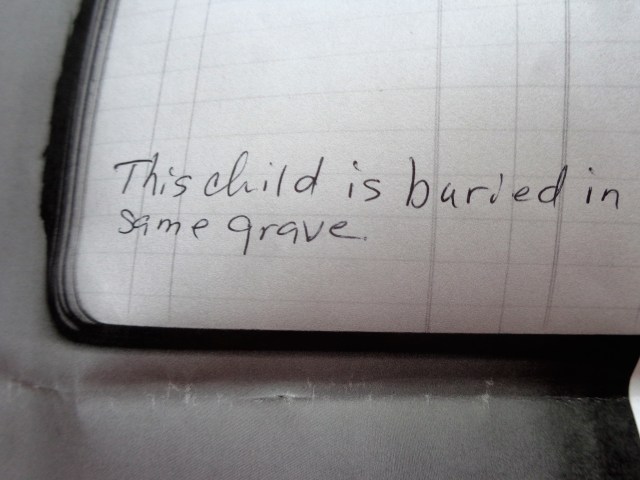 This child is buried in
same grave.